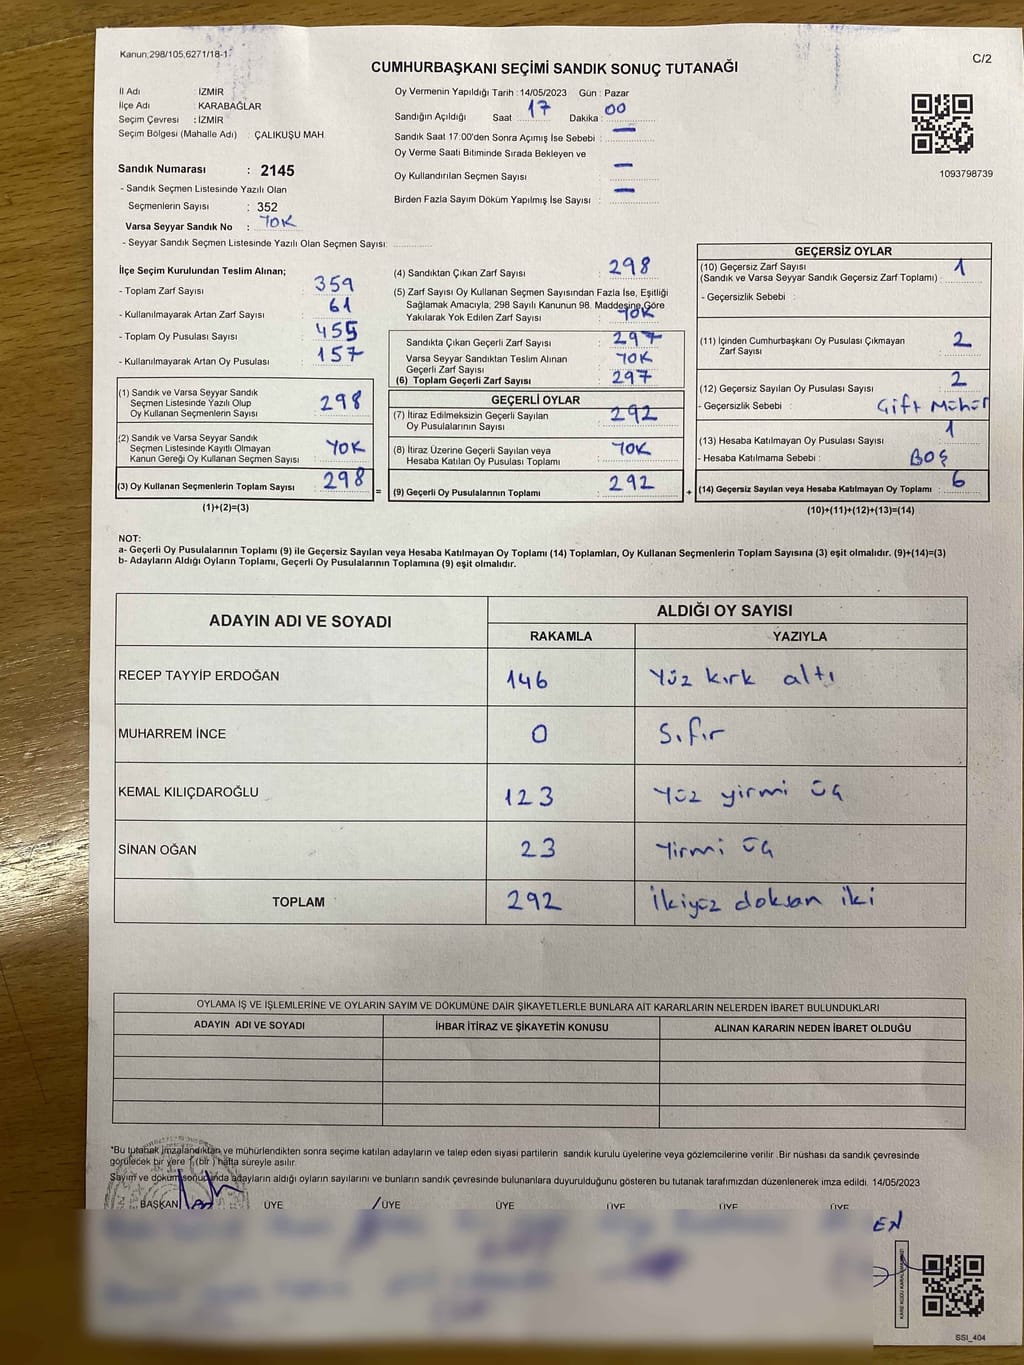 Kanun:298/105,6271/18-1
C/2
CUMHURBAŞKANI SEÇİMİ SANDIK SONUÇ TUTANAĞI
İl Adı İZMİR
İlçe Adı : KARABAĞLAR
Seçim Çevresi : İZMİR
Seçim Bölgesi (Mahalle Adı) : ÇALIKUŞU MAH.
Sandık Numarası : 2145
- Sandık Seçmen Listesinde Yazılı Olan
Seçmenlerin Sayısı : 352
Varsa Seyyar Sandık No : YOK
- Seyyar Sandık Seçmen Listesinde Yazılı Olan Seçmen Sayısı:
Oy Vermenin Yapıldığı Tarih : 14/05/2023 Gün : Pazar
Sandığın Açıldığı Saat : 17 Dakika : 00
Sandık Saat 17:00'den Sonra Açımış İse Sebebi : —
Oy Verme Saati Bitiminde Sırada Bekleyen ve
Oy Kullandırılan Seçmen Sayısı : —
Birden Fazla Sayım Döküm Yapılmış İse Sayısı : —
1093798739
İlçe Seçim Kurulundan Teslim Alınan;
- Toplam Zarf Sayısı : 359
- Kullanılmayarak Artan Zarf Sayısı : 61
- Toplam Oy Pusulası Sayısı : 455
- Kullanılmayarak Artan Oy Pusulası : 157
(1) Sandık ve Varsa Seyyar Sandık
Seçmen Listesinde Yazılı Olup
Oy Kullanan Seçmenlerin Sayısı : 298
(2) Sandık ve Varsa Seyyar Sandık
Seçmen Listesinde Kayıtlı Olmayan
Kanun Gereği Oy Kullanan Seçmen Sayısı : YOK
(3) Oy Kullanan Seçmenlerin Toplam Sayısı : 298
(1)+(2)=(3)
(4) Sandıktan Çıkan Zarf Sayısı : 298
(5) Zarf Sayısı Oy Kullanan Seçmen Sayısından Fazla İse, Eşitliği
Sağlamak Amacıyla; 298 Sayılı Kanunun 98. Maddesine Göre
Yakılarak Yok Edilen Zarf Sayısı : YOK
Sandıkta Çıkan Geçerli Zarf Sayısı : 297
Varsa Seyyar Sandıktan Teslim Alınan
Geçerli Zarf Sayısı : YOK
(6) Toplam Geçerli Zarf Sayısı : 297
GEÇERLİ OYLAR
(7) İtiraz Edilmeksizin Geçerli Sayılan
Oy Pusulalarının Sayısı : 292
(8) İtiraz Üzerine Geçerli Sayılan veya
Hesaba Katılan Oy Pusulası Toplamı : YOK
= (9) Geçerli Oy Pusulalarının Toplamı : 292 +
GEÇERSİZ OYLAR
(10) Geçersiz Zarf Sayısı 1
(Sandık ve Varsa Seyyar Sandık Geçersiz Zarf Toplamı) :
- Geçersizlik Sebebi :
(11) İçinden Cumhurbaşkanı Oy Pusulası Çıkmayan
Zarf Sayısı : 2
(12) Geçersiz Sayılan Oy Pusulası Sayısı : 2
- Geçersizlik Sebebi : Çift Mühür
(13) Hesaba Katılmayan Oy Pusulası Sayısı : 1
- Hesaba Katılmama Sebebi : BOŞ
(14) Geçersiz Sayılan veya Hesaba Katılmayan Oy Toplamı : 6
(10)+(11)+(12)+(13)=(14)
NOT:
a- Geçerli Oy Pusulalarının Toplamı (9) ile Geçersiz Sayılan veya Hesaba Katılmayan Oy Toplamı (14) Toplamları, Oy Kullanan Seçmenlerin Toplam Sayısına (3) eşit olmalıdır. (9)+(14)=(3)
b- Adayların Aldığı Oyların Toplamı, Geçerli Oy Pusulalarının Toplamına (9) eşit olmalıdır.
ADAYIN ADI VE SOYADI ALDIĞI OY SAYISI
RAKAMLA YAZIYLA
RECEP TAYYİP ERDOĞAN 146 Yüz kırk altı
MUHARREM İNCE 0 Sıfır
KEMAL KILIÇDAROĞLU 123 Yüz yirmi üç
SİNAN OĞAN 23 Yirmi üç
TOPLAM 292 İkiyüz doksan iki
OYLAMA İŞ VE İŞLEMLERİNE VE OYLARIN SAYIM VE DÖKÜMÜNE DAİR ŞİKAYETLERLE BUNLARA AİT KARARLARIN NELERDEN İBARET BULUNDUKLARI
ADAYIN ADI VE SOYADI İHBAR İTİRAZ VE ŞİKAYETİN KONUSU ALINAN KARARIN NEDEN İBARET OLDUĞU
*Bu tutanak imzalandıktan ve mühürlendikten sonra seçime katılan adayların ve talep eden siyasi partilerin sandık kurulu üyelerine veya gözlemcilerine verilir .Bir nüshası da sandık çevresinde
görülecek bir yere 1 (bir ) hafta süreyle asılır.
Sayım ve döküm sonucunda adayların aldığı oyların sayılarını ve bunların sandık çevresinde bulunanlara duyurulduğunu gösteren bu tutanak tarafımızdan düzenlenerek imza edildi. 14/05/2023
BAŞKAN ÜYE ÜYE ÜYE ÜYE ÜYE ÜYE
EN
SSI_404